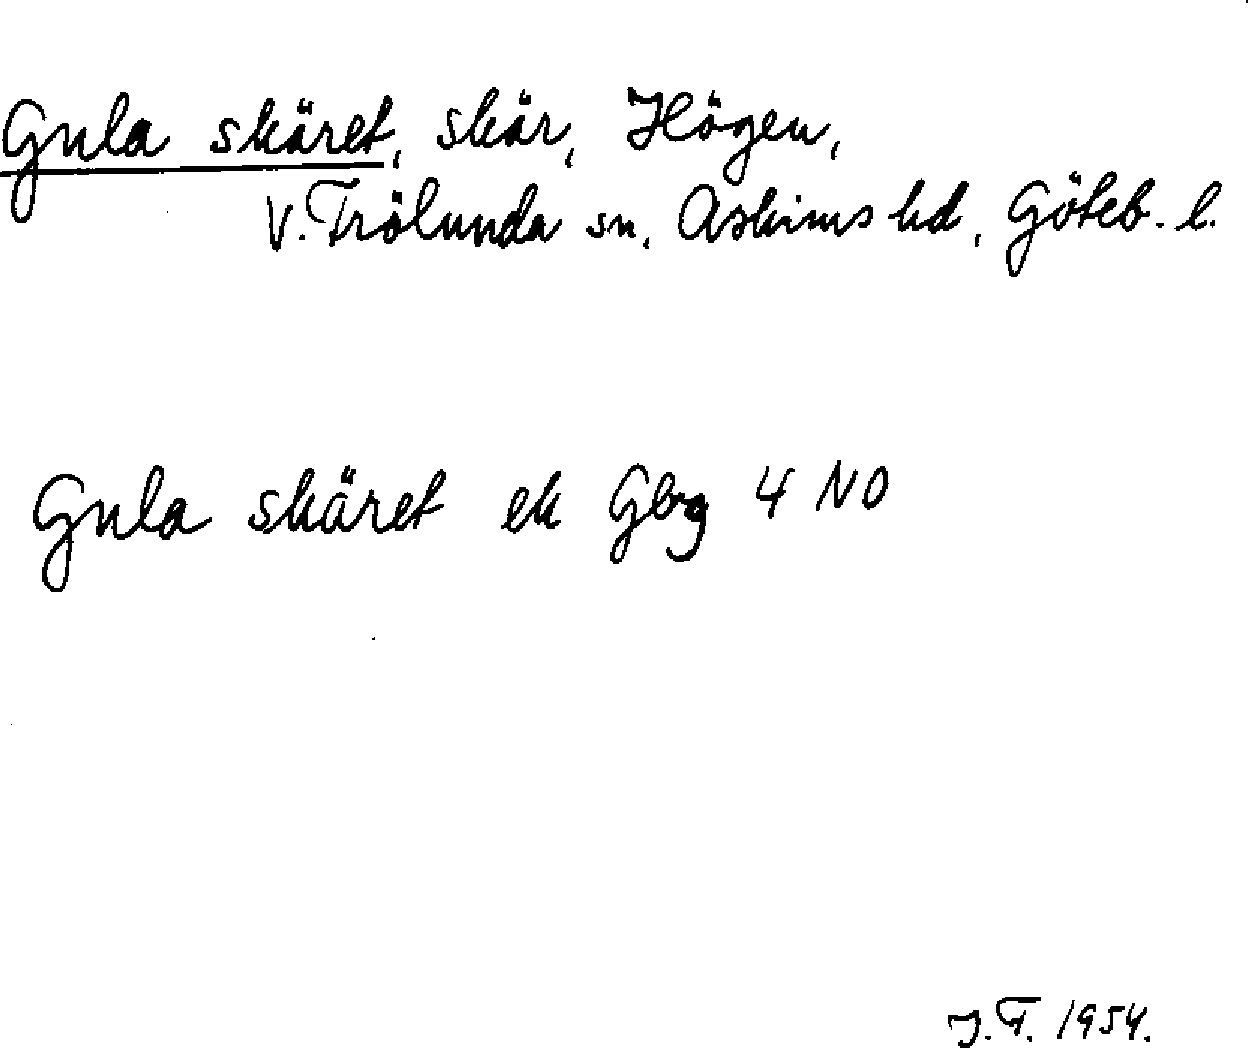 Gula skäret, skär, Högen,
V. Frölunda sn, Askims hd, Göteb. l.
Gula skäret ek Gbg 4 NO
J.F. 1954.